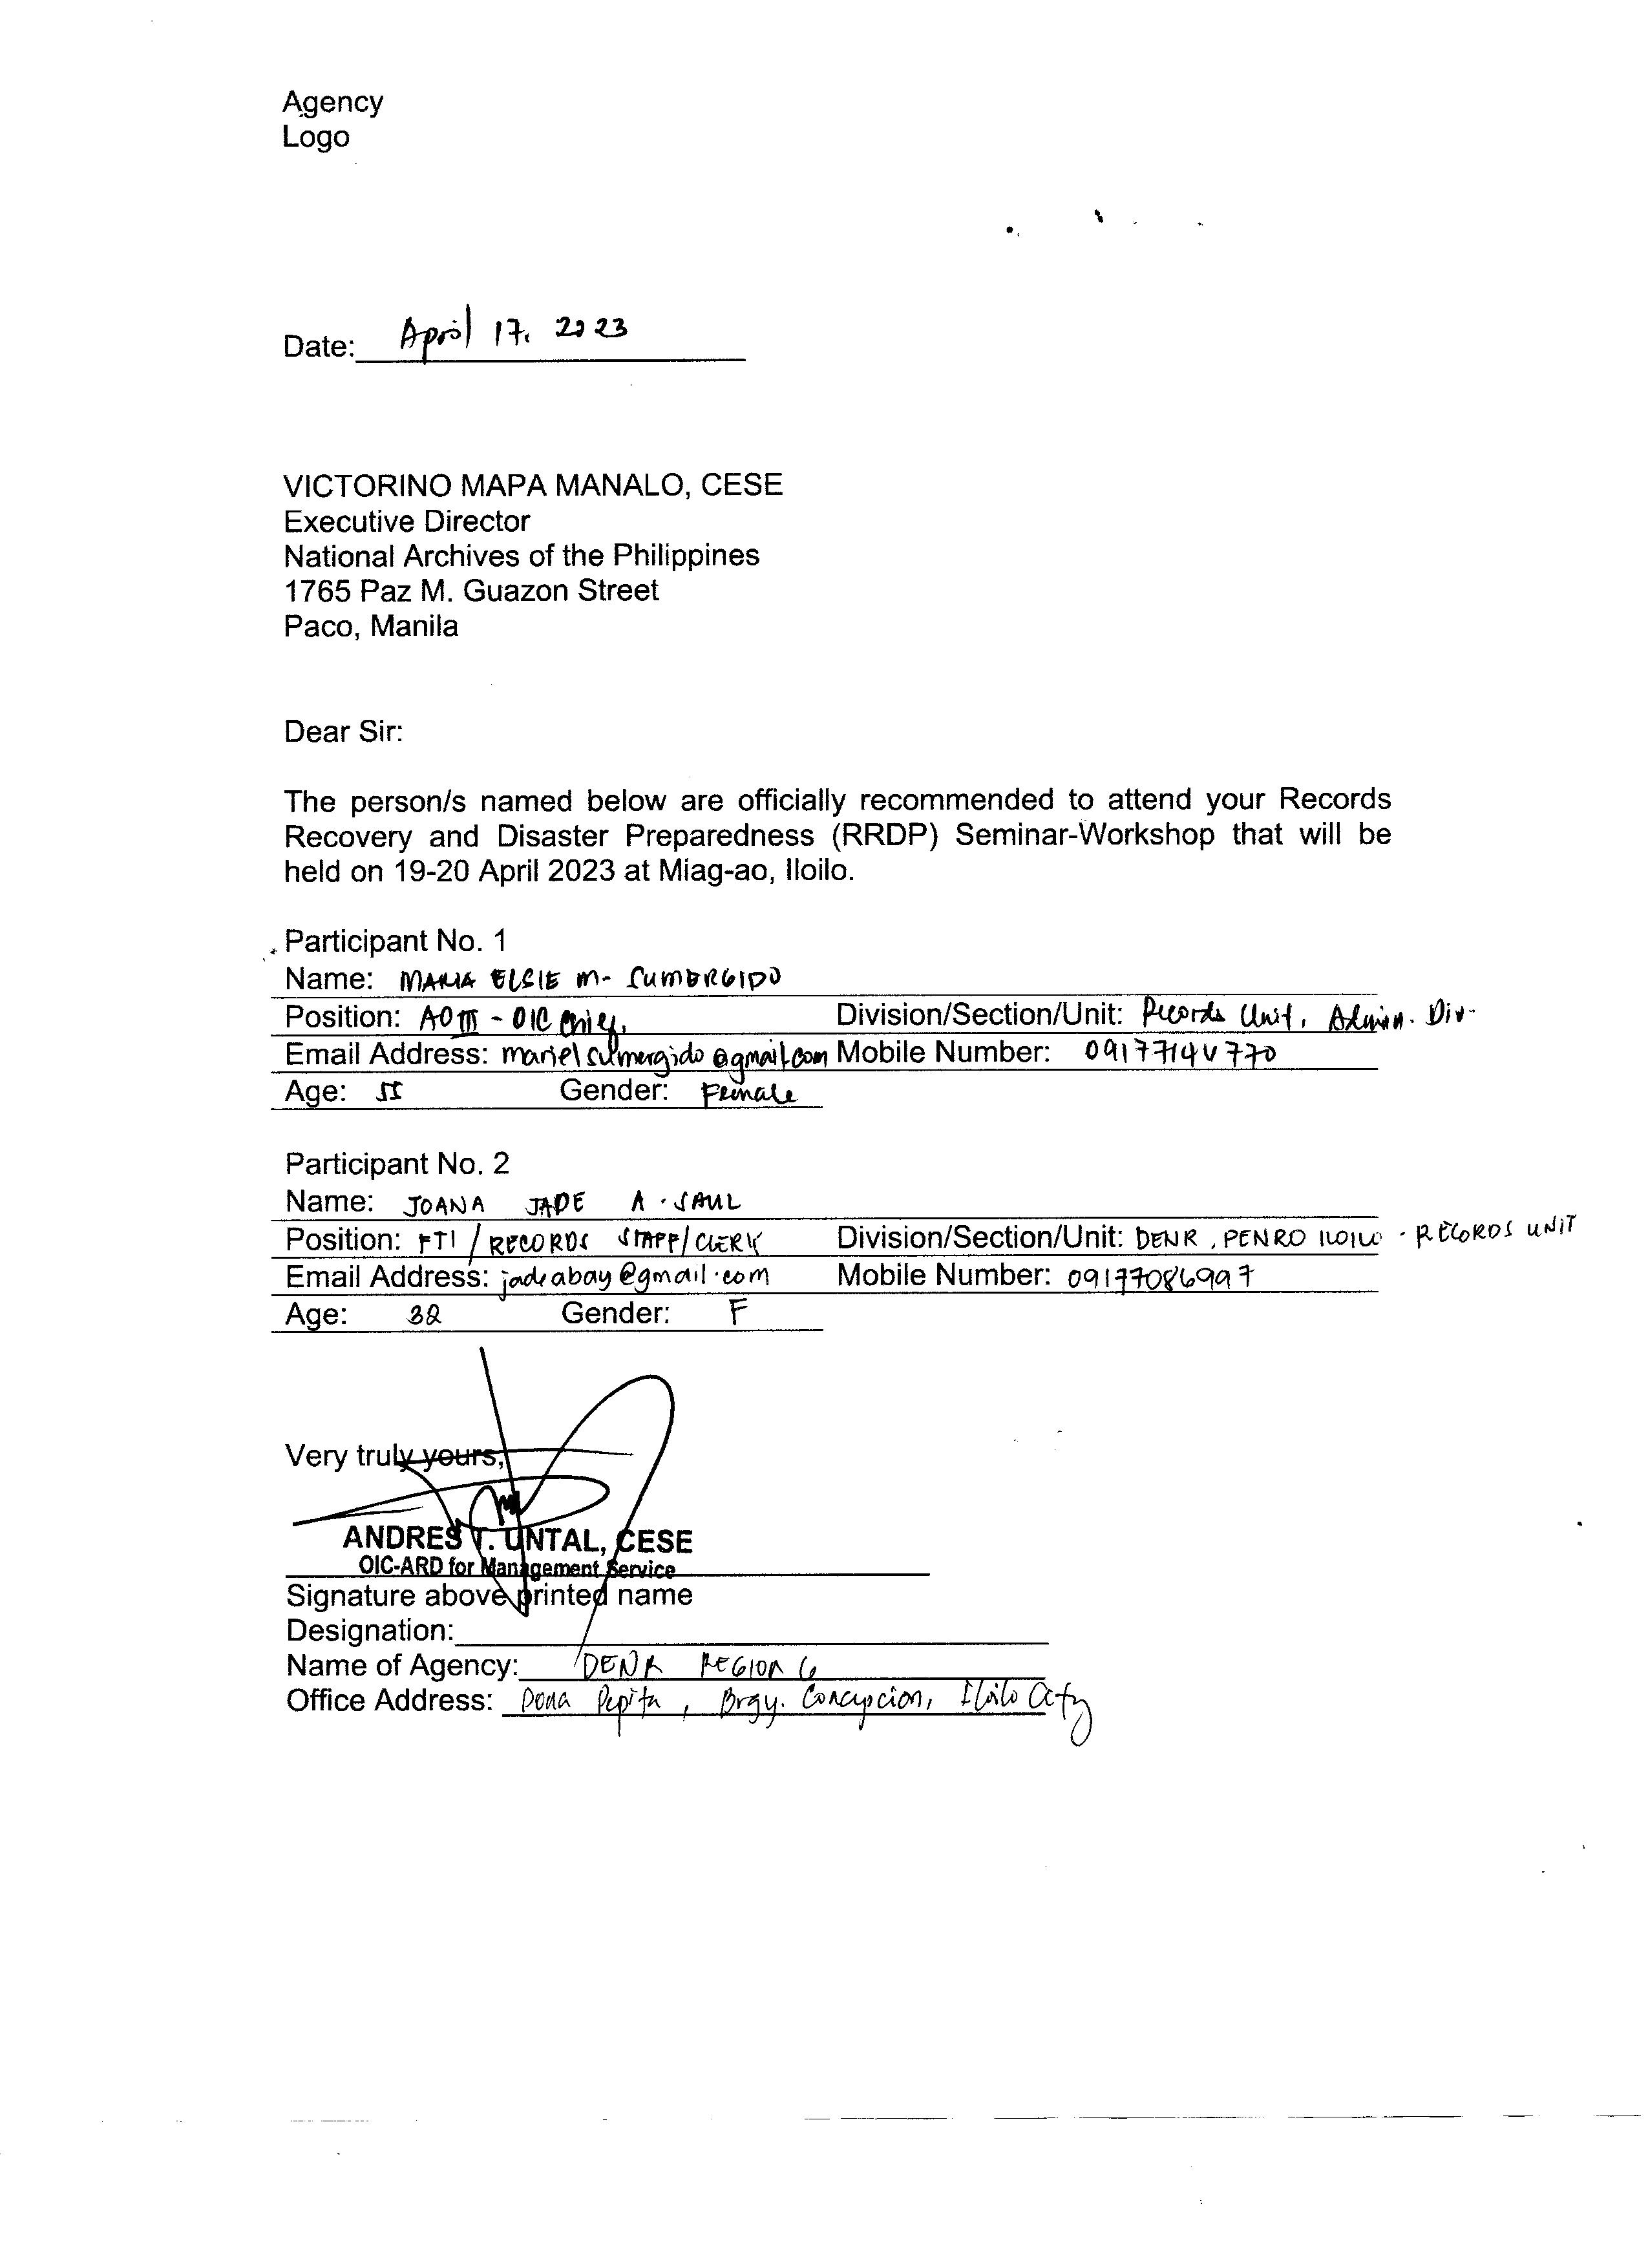 Agency
Logo
Date: April 17, 2023
VICTORINO MAPA MANALO, CESE
Executive Director
National Archives of the Philippines
1765 Paz M. Guazon Street
Paco, Manila
Dear Sir:
The person/s named below are officially recommended to attend your Records
Recovery and Disaster Preparedness (RRDP) Seminar-Workshop that will be
held on 19-20 April 2023 at Miag-ao, Iloilo.
Participant No. 1
Name: MARIA ELSIE M. SUMERGIDO
Position: AO III - OIC Chief, Division/Section/Unit: Records Unit, Admin. Div.
Email Address: marielsumergido@gmail.com Mobile Number:
Age: 55 Gender: Female
Participant No. 2
Name: JOANA JADE A. SAUL
Position: FTI / RECORDS STAFF/CLERK Division/Section/Unit: DENR, PENRO ILOILO - RECORDS UNIT
Email Address: jadeabay@gmail.com Mobile Number: 09177086997
Age: 32 Gender: F
Very truly yours,
ANDRES T. UNTAL, CESE
OIC-ARD for Management Service
Signature above printed name
Designation:
Name of Agency: DENR REGION 6
Office Address: Dona Pepita, Brgy. Concepcion, Iloilo City